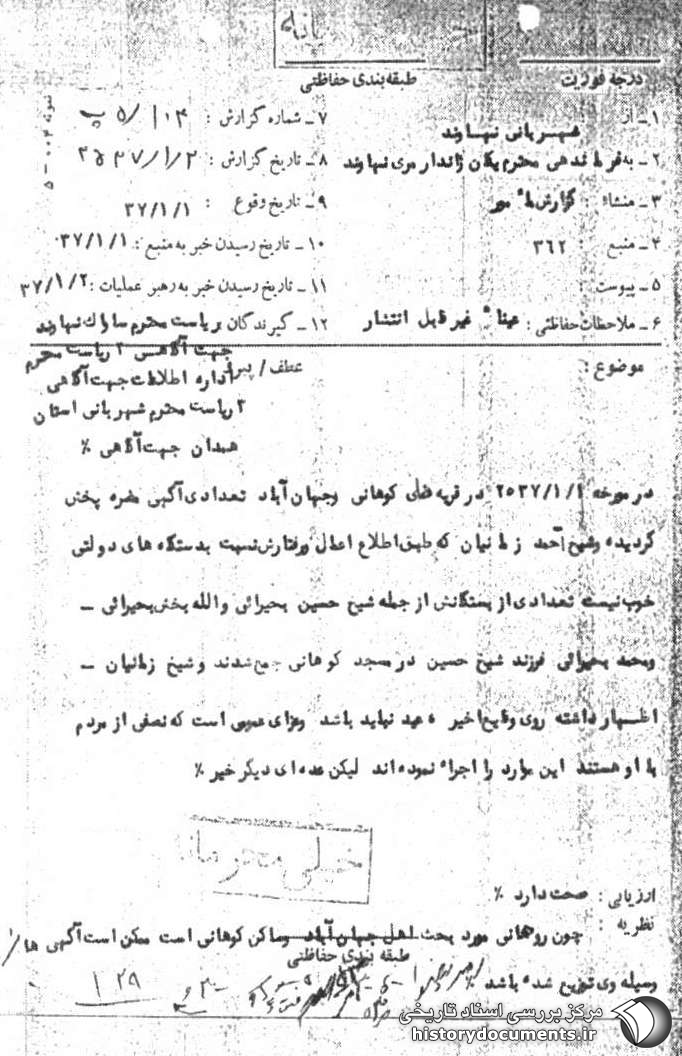 درجه فوریت
طبقه‌بندی حفاظتی
۱ـ از : شهربانی نهاوند
۲ـ به فرماندهی محترم یکان ژاندارمری نهاوند
۳ـ منشاء : گزارش مأمور
۴ـ منبع : ۳۶۲
۵ـ پیوست :
۶ـ ملاحظات حفاظتی : عیناً غیر قابل انتشار
۷ـ شماره گزارش : ۵/۱۰۴
۸ـ تاریخ گزارش : ۳۷/۱/۲
۹ـ تاریخ وقوع : ۳۷/۱/۱
۱۰ـ تاریخ رسیدن خبر به منبع : ۳۷/۱/۱
۱۱ـ تاریخ رسیدن خبر به رهبر عملیات : ۳۷/۱/۲
۱۲ـ گیرندگان ریاست محترم ساواک نهاوند
جهت آگاهی ۲ ریاست محترم
اداره اطلاعات جهت آگاهی
۳ ریاست محترم شهربانی استان
همدان جهت آگاهی ٪
موضوع :
عطف / پیرو
در مورخه ۲۵۳۷/۱/۱ در قریه های کوهانی وجهان آباد تعدادی آگهی مضره پخش
گردیده وشیخ احمد زمانیان که طبق اطلاع اعمال ورفتارش نسبت بدستگاه های دولتی
خوب نیست تعدادی از بستگانش از جمله شیخ حسین بحیرائی والله بخش بحیرائی ـ
ومحمد بحیرائی فرزند شیخ حسین در مسجد کوهانی جمع شدند وشیخ زمانیان ـ
اظهار داشته روی وقایع اخیر عید نباید باشد وعزای عمومی است که نصفی از مردم
با او هستند این موارد را اجراء نموده اند لیکن عده ای دیگر خیر ٪
خیلی محرمانه
ارزیابی : صحت دارد ٪
نظریه : چون روحانی مورد بحث اهل جهان آباد وساکن کوهانی است ممکن است آگهی ها
وسیله وی توزیع شده باشد ٪
طبقه بندی حفاظتی
۱۲۹
مرکز بررسی اسناد تاریخی
historydocuments.ir